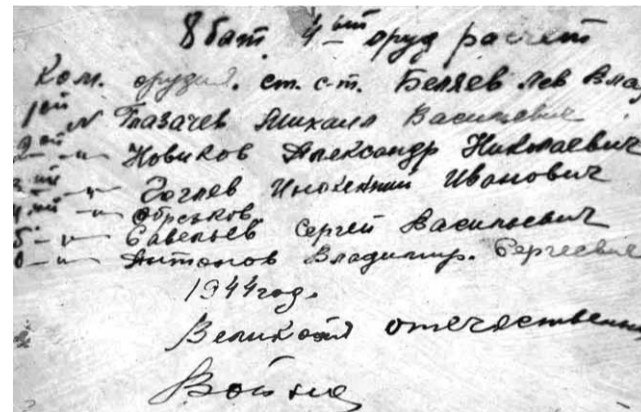 8 бат 4ый оруд расчет
Ком. орудия. ст. с-т. Беляев Лев Влад
1ый № Глазачев Михаил Васильевич
2 ой — " — Новиков Александр Николаевич
3 ий — " — Гоглев Инокентий Иванович
4 ый — " — Обрськов
5 — " — Савельев Сергей Васильевич
6 — " — Антонов Владимир. Сергеевич
1944 год.
Великая отечественн
Война